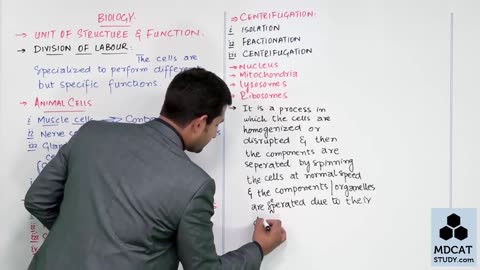 BIOLOGY.
→ UNIT OF STRUCTURE & FUNCTION.
→ DIVISION OF LABOUR:
The cells are
specialized to perform
but specific functions.
→ ANIMAL CELLS
i Muscle cells →
ii Nerve
iii
→ CENTRIFUGATION:
i ISOLATION
ii FRACTIONATION
iii CENTRIFUGATION
→ Nucleus
→ Mitochondria
→ Lysosomes
→ Ribosomes
→ It is a process in
which the cells are
homogenized or
disrupted & then
the components are
seperated by spinning
the cells at normal speed
& the components/organelles
are seperated due to their
MDCAT
STUDY.com